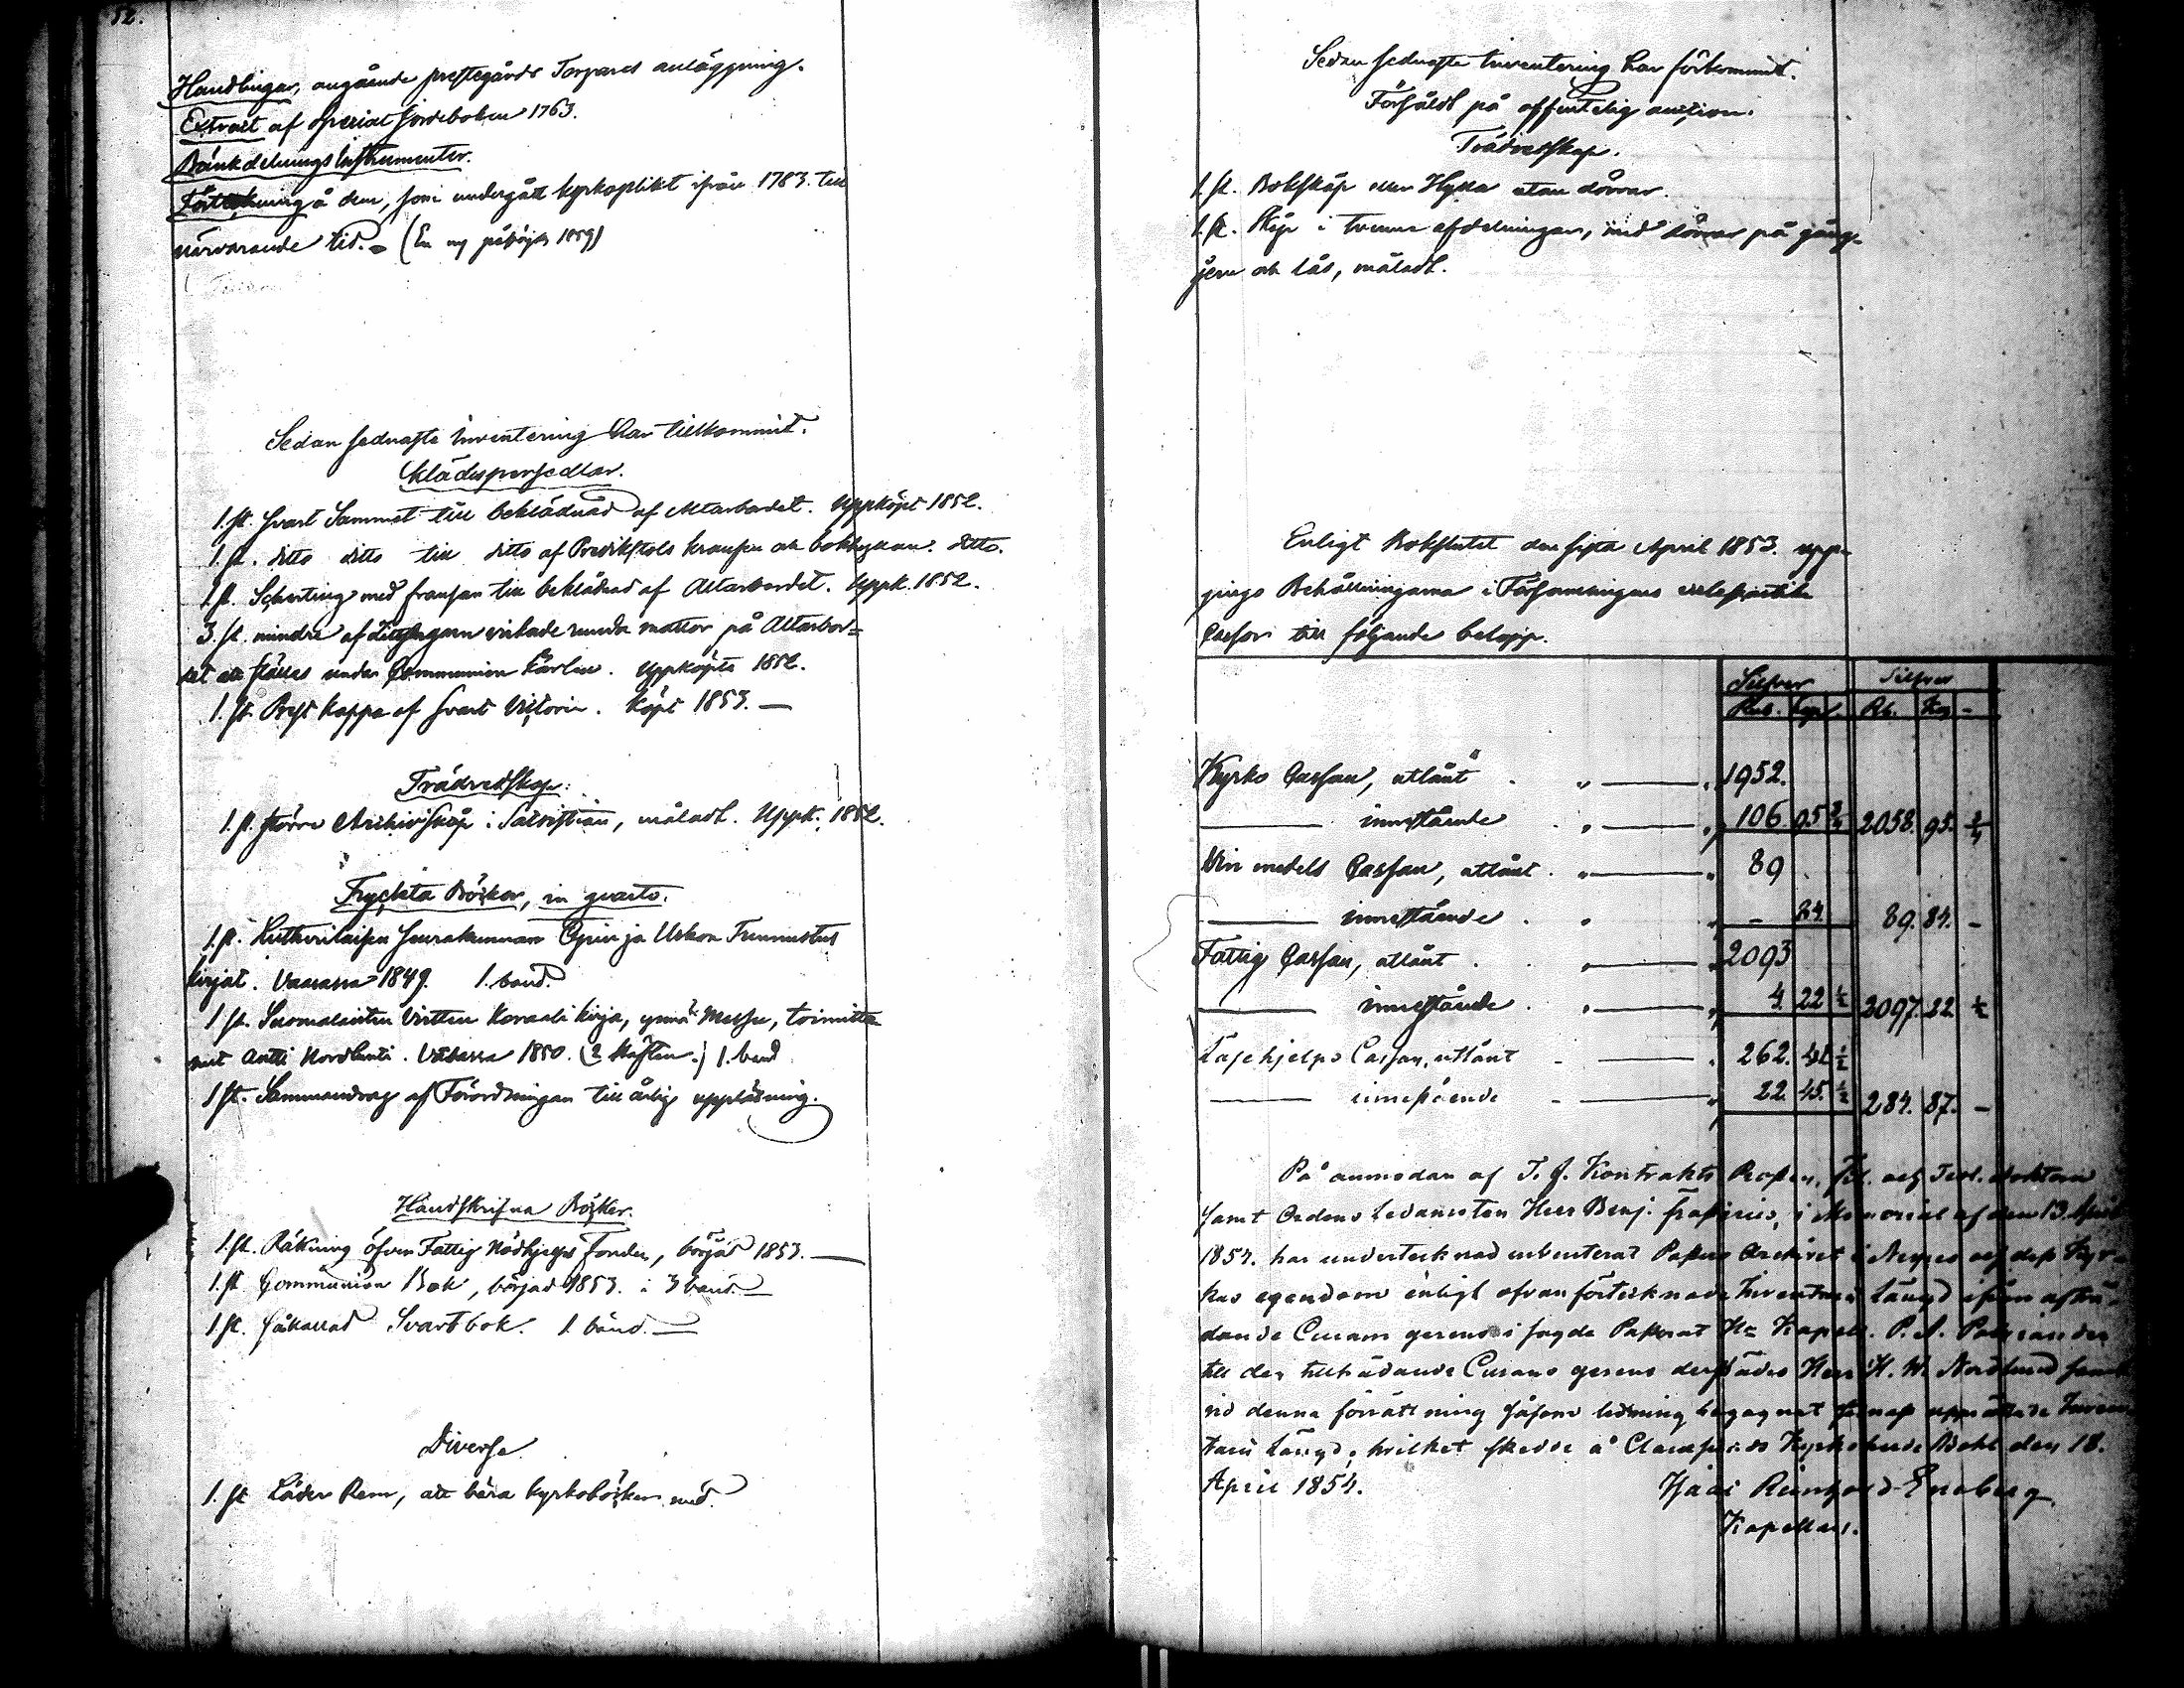 52.
Handlingar, angående prestegårds Torpares anläggning.
Extract af Special Jordeboken 1763.
Bänkdelnings Instrumenter.
Förtekning å dem, som undergått kyrkoplikt ifrån 1783. till
närvarande tid. (En ny påböjas 1859)
Sedan sednaste Inventering har tillkommit.
Klädespersedlar.
1. st. svart Sammet till beklädnad af Altarbordet. Uppköpt 1852.
1. st. ditto ditto till ditto af Predikstols kransen och bokhyllan. ditto.
1. st. Scherting med fransar till beklädnad af Altarbordet. Uppk. 1852.
3. st. mindre af virkade runda mattor på Altarbor=
det att ställas under Communion Kärlen. Uppköpte 1852.
1. st. Prest kappa af svart Victoria. Köpt 1853. —
Trädredskap:
1. st. större Archivskåp i Sacristian, måladt. Uppk. 1852.
Tryckta Böcker, in quarto.
1. st. Lutherilaisen Seurakunnan Opin ja Uskon Tunnustus
kirjat. Vaasassa 1849. 1. band.
1 st. Suomalaisten Virtten Koraali kirja, ynnä Messu, toimitta
nut Antti Nordlunti. Vaasassa 1850. (2 häften.) 1. band
1 st. Sammandrag af Förordningar till årlig uppläsning.
Handskrifna Böcker.
1. st. Räkning öfver Fattig Nödhjelps Fonden, börjad 1853. —
1. st. Communion Bok, börjad 1853. i 3 band. —
1. st. såkallad Svartbok. 1. band. —
Diverse.
1. st Läder Rem, att bära kyrkoböcker med.
Sedan sednaste Inventering har förkommit.
Försåldt på offentelig auction.
Trädredskap.
1. st. Bokskåp eller Hylla utan dörrar.
1. st. Skåp i tvenne afdelningar, med dörrar på gång-
jern och lås, måladt.
Enligt Bokslutet den sista April 1853. upp-
gingo Behållningarna i Församlingens
Cassor till följande belopp.
Silfver Silfver
Rub. Kop. Rb. Kop -
Kyrko Cassan, utlånt " — 1952.
— innestående " — 106 95 3/4 2058. 95. 3/4
Vin medels Cassan, utlånt. " — 89
— innestående " - 84. 89. 84. -
Fattig Cassan, utlånt " — 2093
— innestående " — 4. 22 1/2 2097. 22 1/2
Cassan, utlånt — 262. 41 1/2
— innestående — 22. 45. 1/2 284. 87. -
På anmodan af T. f. Kontrakts Prosten, Fil. och Teol. doktorn
samt Ordens Ledamoten Herr Benj. Frosterus, i Memorial af den 13. April
1854. har undertecknad inventerat Pastors Archivet i och dess Kyr-
kas egendom enligt ofvan förtecknade Inventarii Längd ifrån afträ-
dande Curam gerens i sagde Pastorat Hr Kapell.
till den tillträdande Curam gerens derstädes Herr H. W. Nordlund samt
vid denna förrättning såsom ledning begagnat upprättade Inven
tarii Längd, hvilket skedde å Kyrkoherde Bohl den 18.
April 1854.
Kapellan.